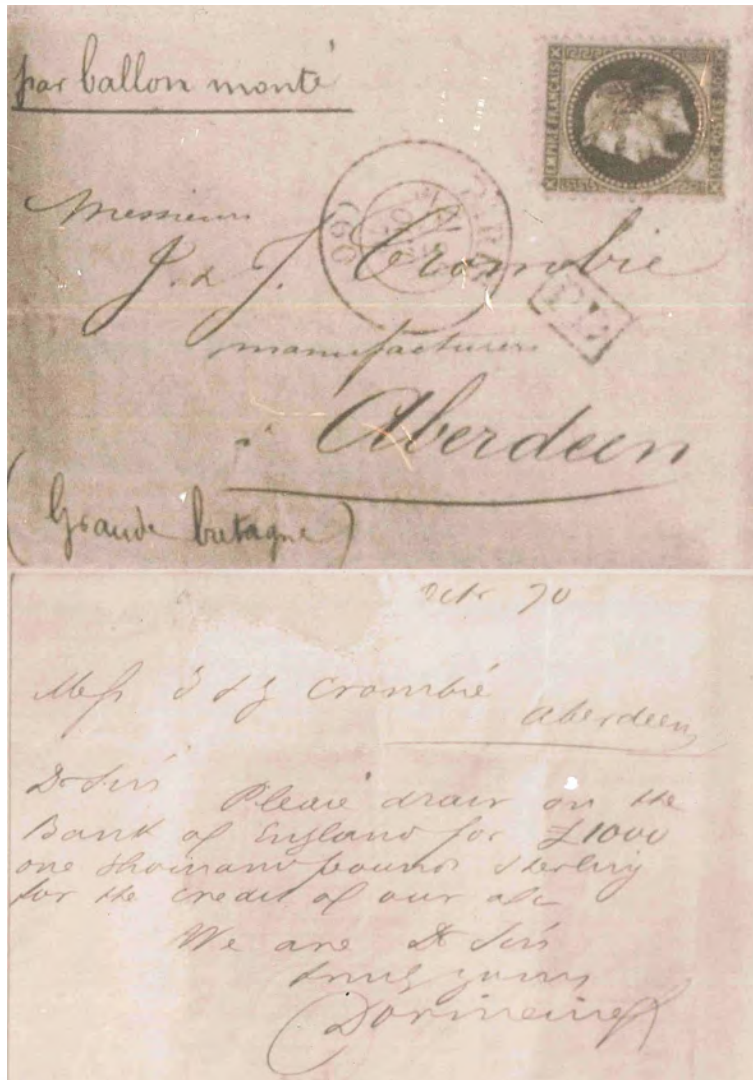 par ballon monté
EMPIRE FRANÇAIS
(60)
Messieurs
J. & J. Crombie
manufacturers
à Aberdeen
(Grande bretagne)
Octr 70
Mess J & J Crombie
Aberdeen
Dr Sirs Please draw on the
Bank of England for £1000
one thousand pounds sterling
for the credit of our a/c
We are Dr Sirs
truly yours